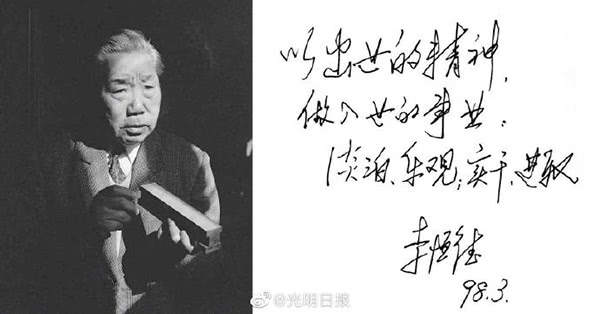 以出世的精神，
做入世的事业；
淡泊、乐观；实干、进取
李恒德
98.3.
@光明日报